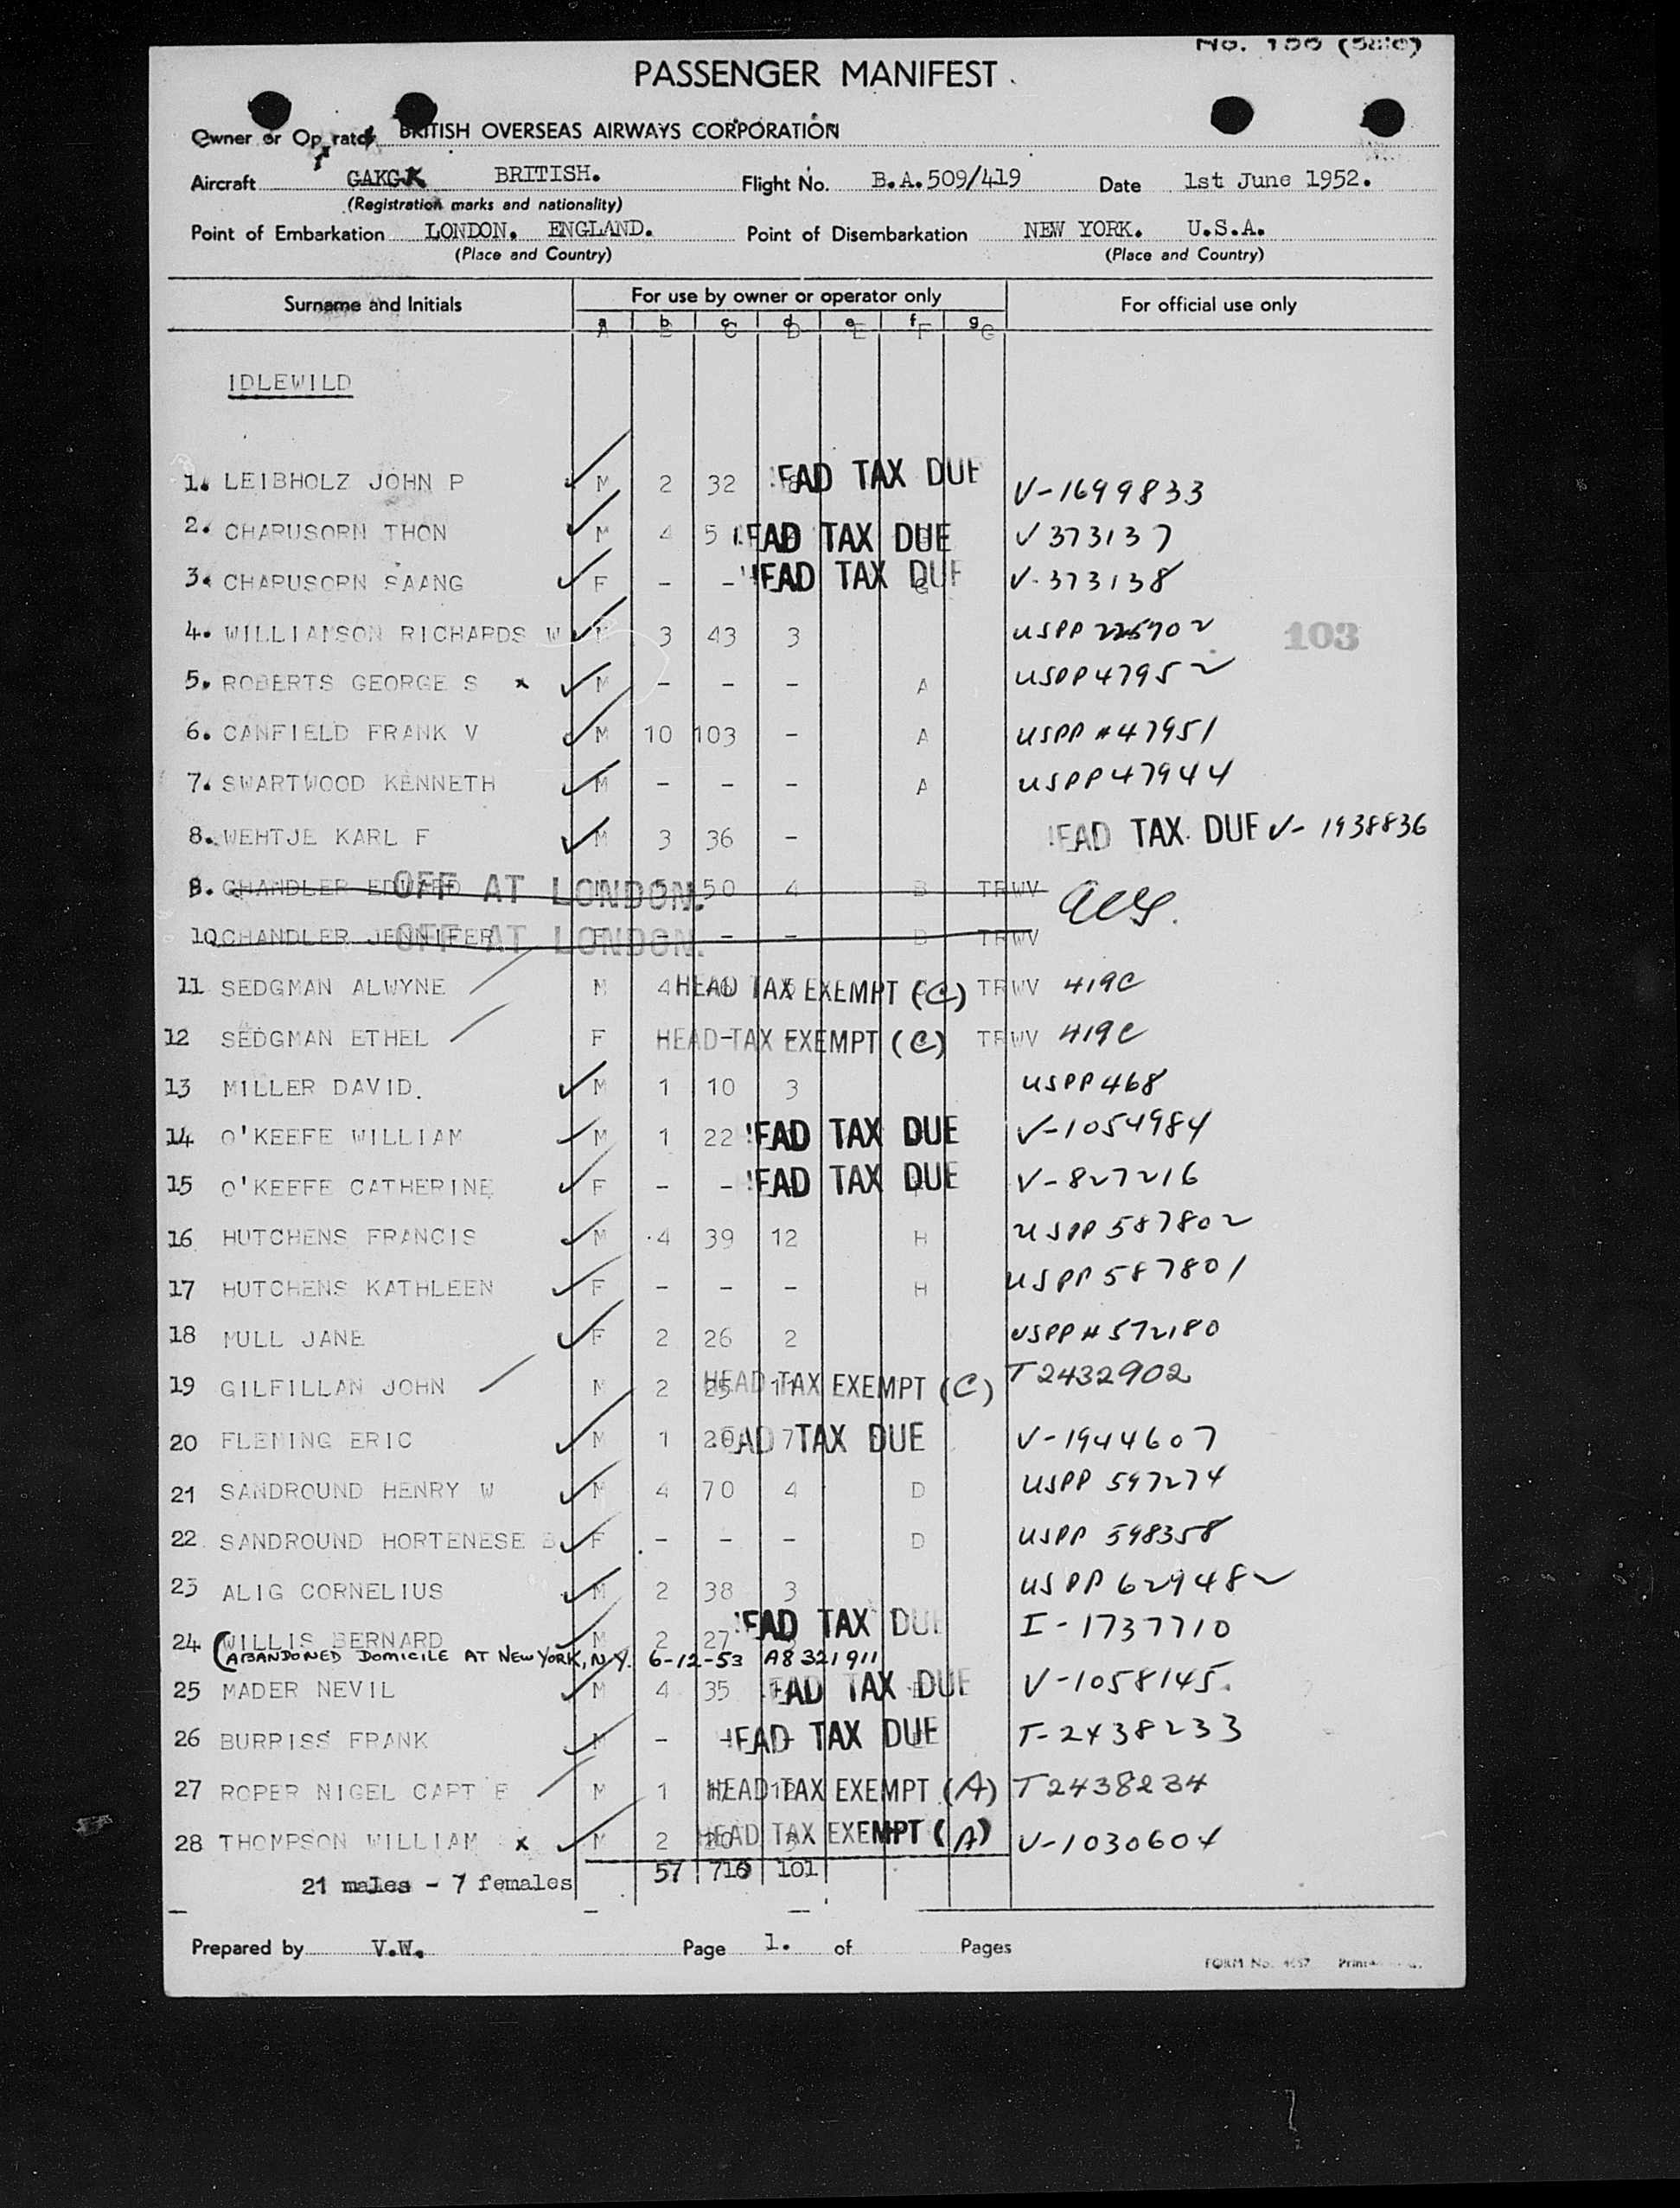 PASSENGER MANIFEST
Owner or Operator BRITISH OVERSEAS AIRWAYS CORPORATION
Aircraft BRITISH. Flight No. B.A.509/419 Date 1st June 1952.
(Registration marks and nationality)
Point of Embarkation LONDON. ENGLAND. Point of Disembarkation NEW YORK. U.S.A.
(Place and Country) (Place and Country)
Surname and Initials For use by owner or operator only For official use only
a b c d e f g
A B C D E F G
IDLEWILD
1. LEIBHOLZ JOHN P M 2 32 HEAD TAX DUE V-1699833
2. CHARUSORN THON M 4 5 HEAD TAX DUE V 373137
3. CHARUSORN SAANG F - - HEAD TAX DUE G V-373138
4. WILLIAMSON RICHARDS W M 3 43 3 USPP 225702
103
5. ROBERTS GEORGE S x M - - - A USPP 47952
6. CANFIELD FRANK V M 10 103 - A USPP # 47951
7. SWARTWOOD KENNETH M - - - A USPP 47944
8. WEHTJE KARL F M 3 36 - HEAD TAX DUE V-1938836
9. CHANDLER EDWARD OFF AT LONDON. M 5 50 4 B TRWV
10 CHANDLER JENNIFER OFF AT LONDON. F - - - B TRWV
11 SEDGMAN ALWYNE M 4 HEAD TAX EXEMPT (C) TRWV 419C
12 SEDGMAN ETHEL F HEAD TAX EXEMPT (C) TRWV 419C
13 MILLER DAVID. M 1 10 3 USPP 468
14 O'KEEFE WILLIAM M 1 22 HEAD TAX DUE V-1054984
15 O'KEEFE CATHERINE F - - HEAD TAX DUE V-827216
16 HUTCHENS FRANCIS M 4 39 12 H USPP 587802
17 HUTCHENS KATHLEEN F - - - H USPP 587801
18 MULL JANE F 2 26 2 USPP # 572180
19 GILFILLAN JOHN M 2 25 11 HEAD TAX EXEMPT (C) T2432902
20 FLEMING ERIC M 1 20 7 HEAD TAX DUE V-1944607
21 SANDROUND HENRY W M 4 70 4 D USPP 597274
22 SANDROUND HORTENESE B F - - - D USPP 598358
23 ALIG CORNELIUS M 2 38 3 USPP 629482
24 WILLIS BERNARD M 2 27 HEAD TAX DUE I-1737710
(ABANDONED DOMICILE AT NEW YORK, N.Y. 6-12-53 A8 321911
25 MADER NEVIL M 4 35 HEAD TAX DUE V-1058145.
26 BURRISS FRANK M - HEAD TAX DUE T-2438233
27 ROPER NIGEL CAPT E M 1 HEAD TAX EXEMPT (A) T2438234
28 THOMPSON WILLIAM x M 2 HEAD TAX EXEMPT (A) V-1030604
57 716 101
21 males - 7 females
Prepared by V.W. Page 1. of Pages
FORM No.